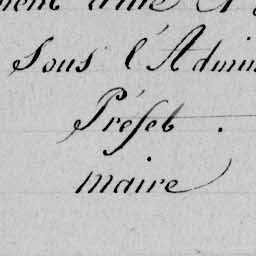 Sous l'Admin
Préfet .
maire